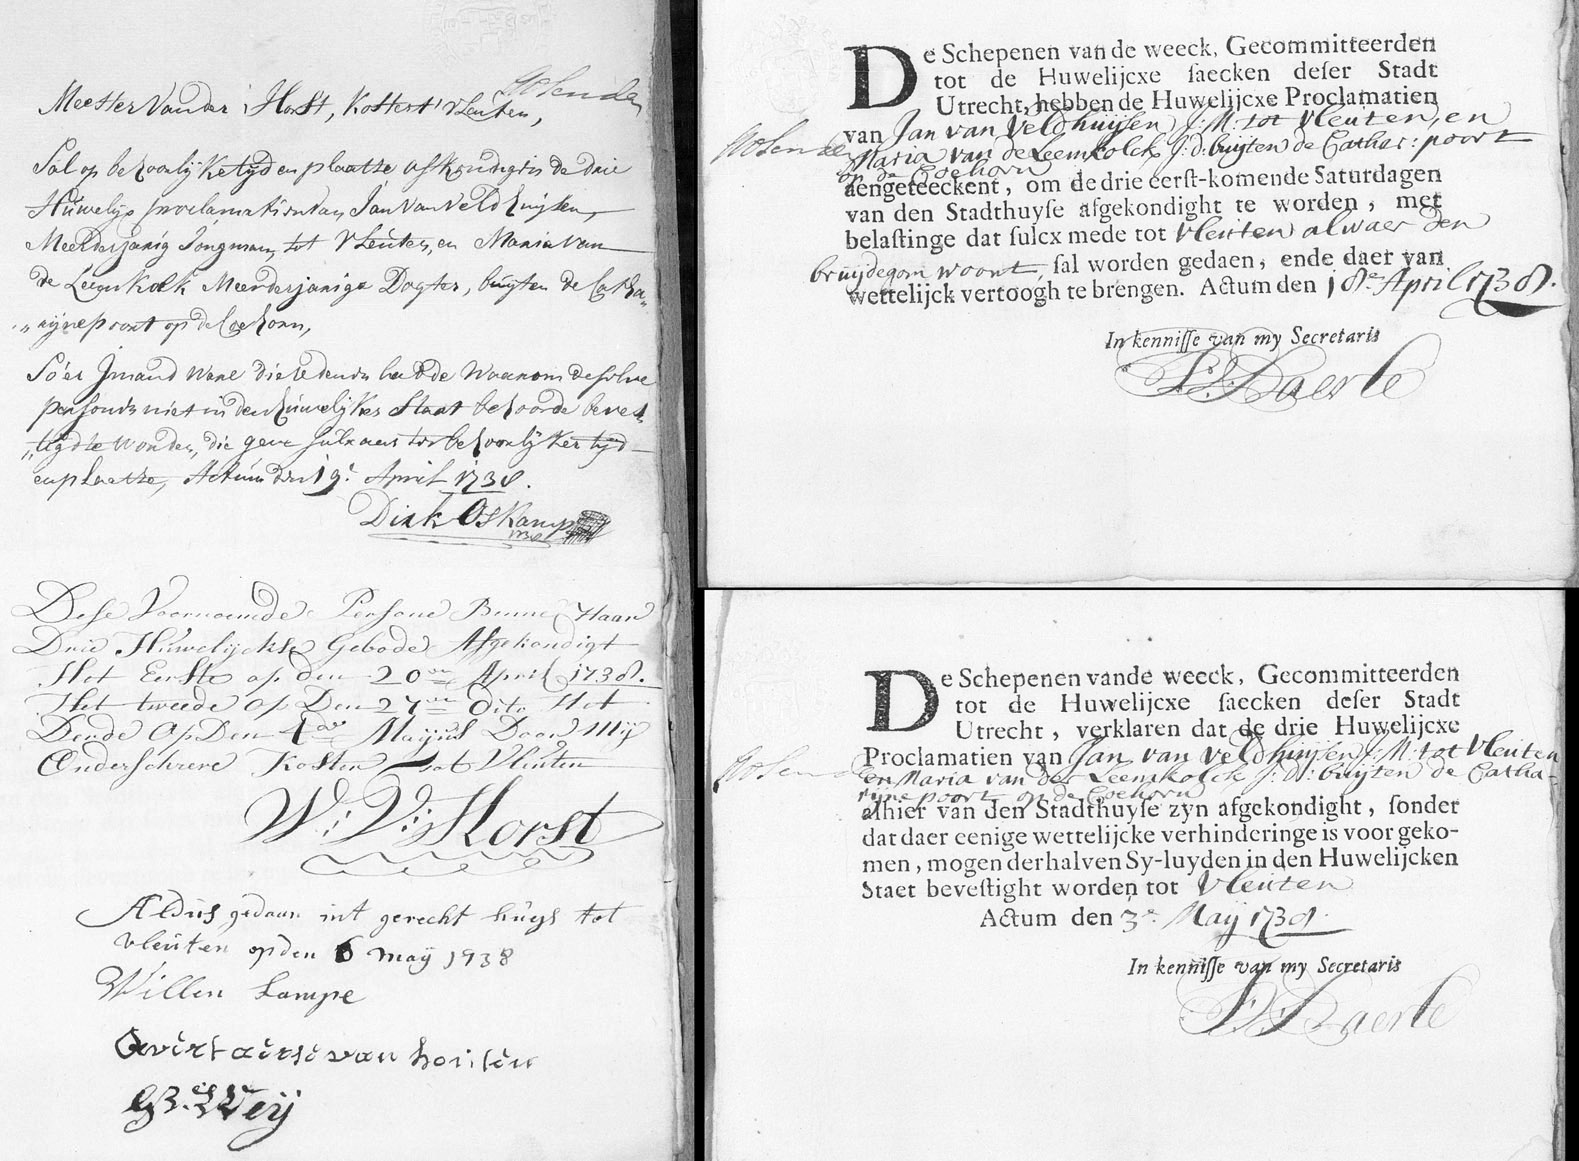 Gosenda
Meester Van der Horst, Koster tot Vleuten,
Sal op behoorlijke tyd en plaatse afkondigen de drie
Huwelijx proclamation van Jan van Veldhuijsen,
Meerderjarig Jongman, tot Vleuten, en Maria van
de Leemkolk Meerderjarige Dogter, buyten de Catha-
„rijnepoort op de Coehorn,
So'er Jmand Ware die redenen hadde Waerom deselve
persoonen niet in den huwelijken Staat behoorde beves„
„tigd te Worden, die geve sulx aen ter behoorlijker tijd
en plaatse, Actum den 19e April 1738.
Dirk Oskamp
1738
Dese Voornoemde Persone Binne Haar
Drie Huwelijckse Gebode Afgekondigt
Het Eerste op den 20en April 1738.
Het tweede op Den 27en Dito Het
Derde Op Den 4de Maijus Door Mij
Onderschreve Koster tot Vleuten
W: V: Horst
Aldus gedaan int gerecht huijs tot
vleuten op den 6 maij 1938
Willem Lampe
van houten
De Schepenen van de weeck, Gecommitteerden
tot de Huwelijcxe saecken deser Stadt
Utrecht, hebben de Huwelijcxe Proclamatien
van Jan van Veldhuijsen J: M: tot Vleuten, en
Maria van de Leemkolck J: d: buijten de Cathar: poort
op de Coehorn
aengeteeckent, om de drie eerst-komende Saturdagen
van den Stadthuyse afgekondight te worden, met
belastinge dat sulcx mede tot Vleuten alwaer den
bruijdegom woont, sal worden gedaen, ende daer van
wettelijck vertoogh te brengen. Actum den 18e April 1738.
In kennisse van my Secretaris
De Schepenen vande weeck, Gecommitteerden
tot de Huwelijcxe saecken deser Stadt
Utrecht, verklaren dat de drie Huwelijcxe
Proclamatien van Jan van Veldhuijsen J: M: tot Vleuten
en Maria van de Leemkolck J: D: buijten de Catha-
rijne poort op de Coehorn
alhier van den Stadthuyse zyn afgekondight, sonder
dat daer eenige wettelijcke verhinderinge is voor geko-
men, mogen derhalven Sy-luyden in den Huwelijcken
Staet bevestight worden tot Vleuten
Actum den 3e Maij 1738.
In kennisse van my Secretaris